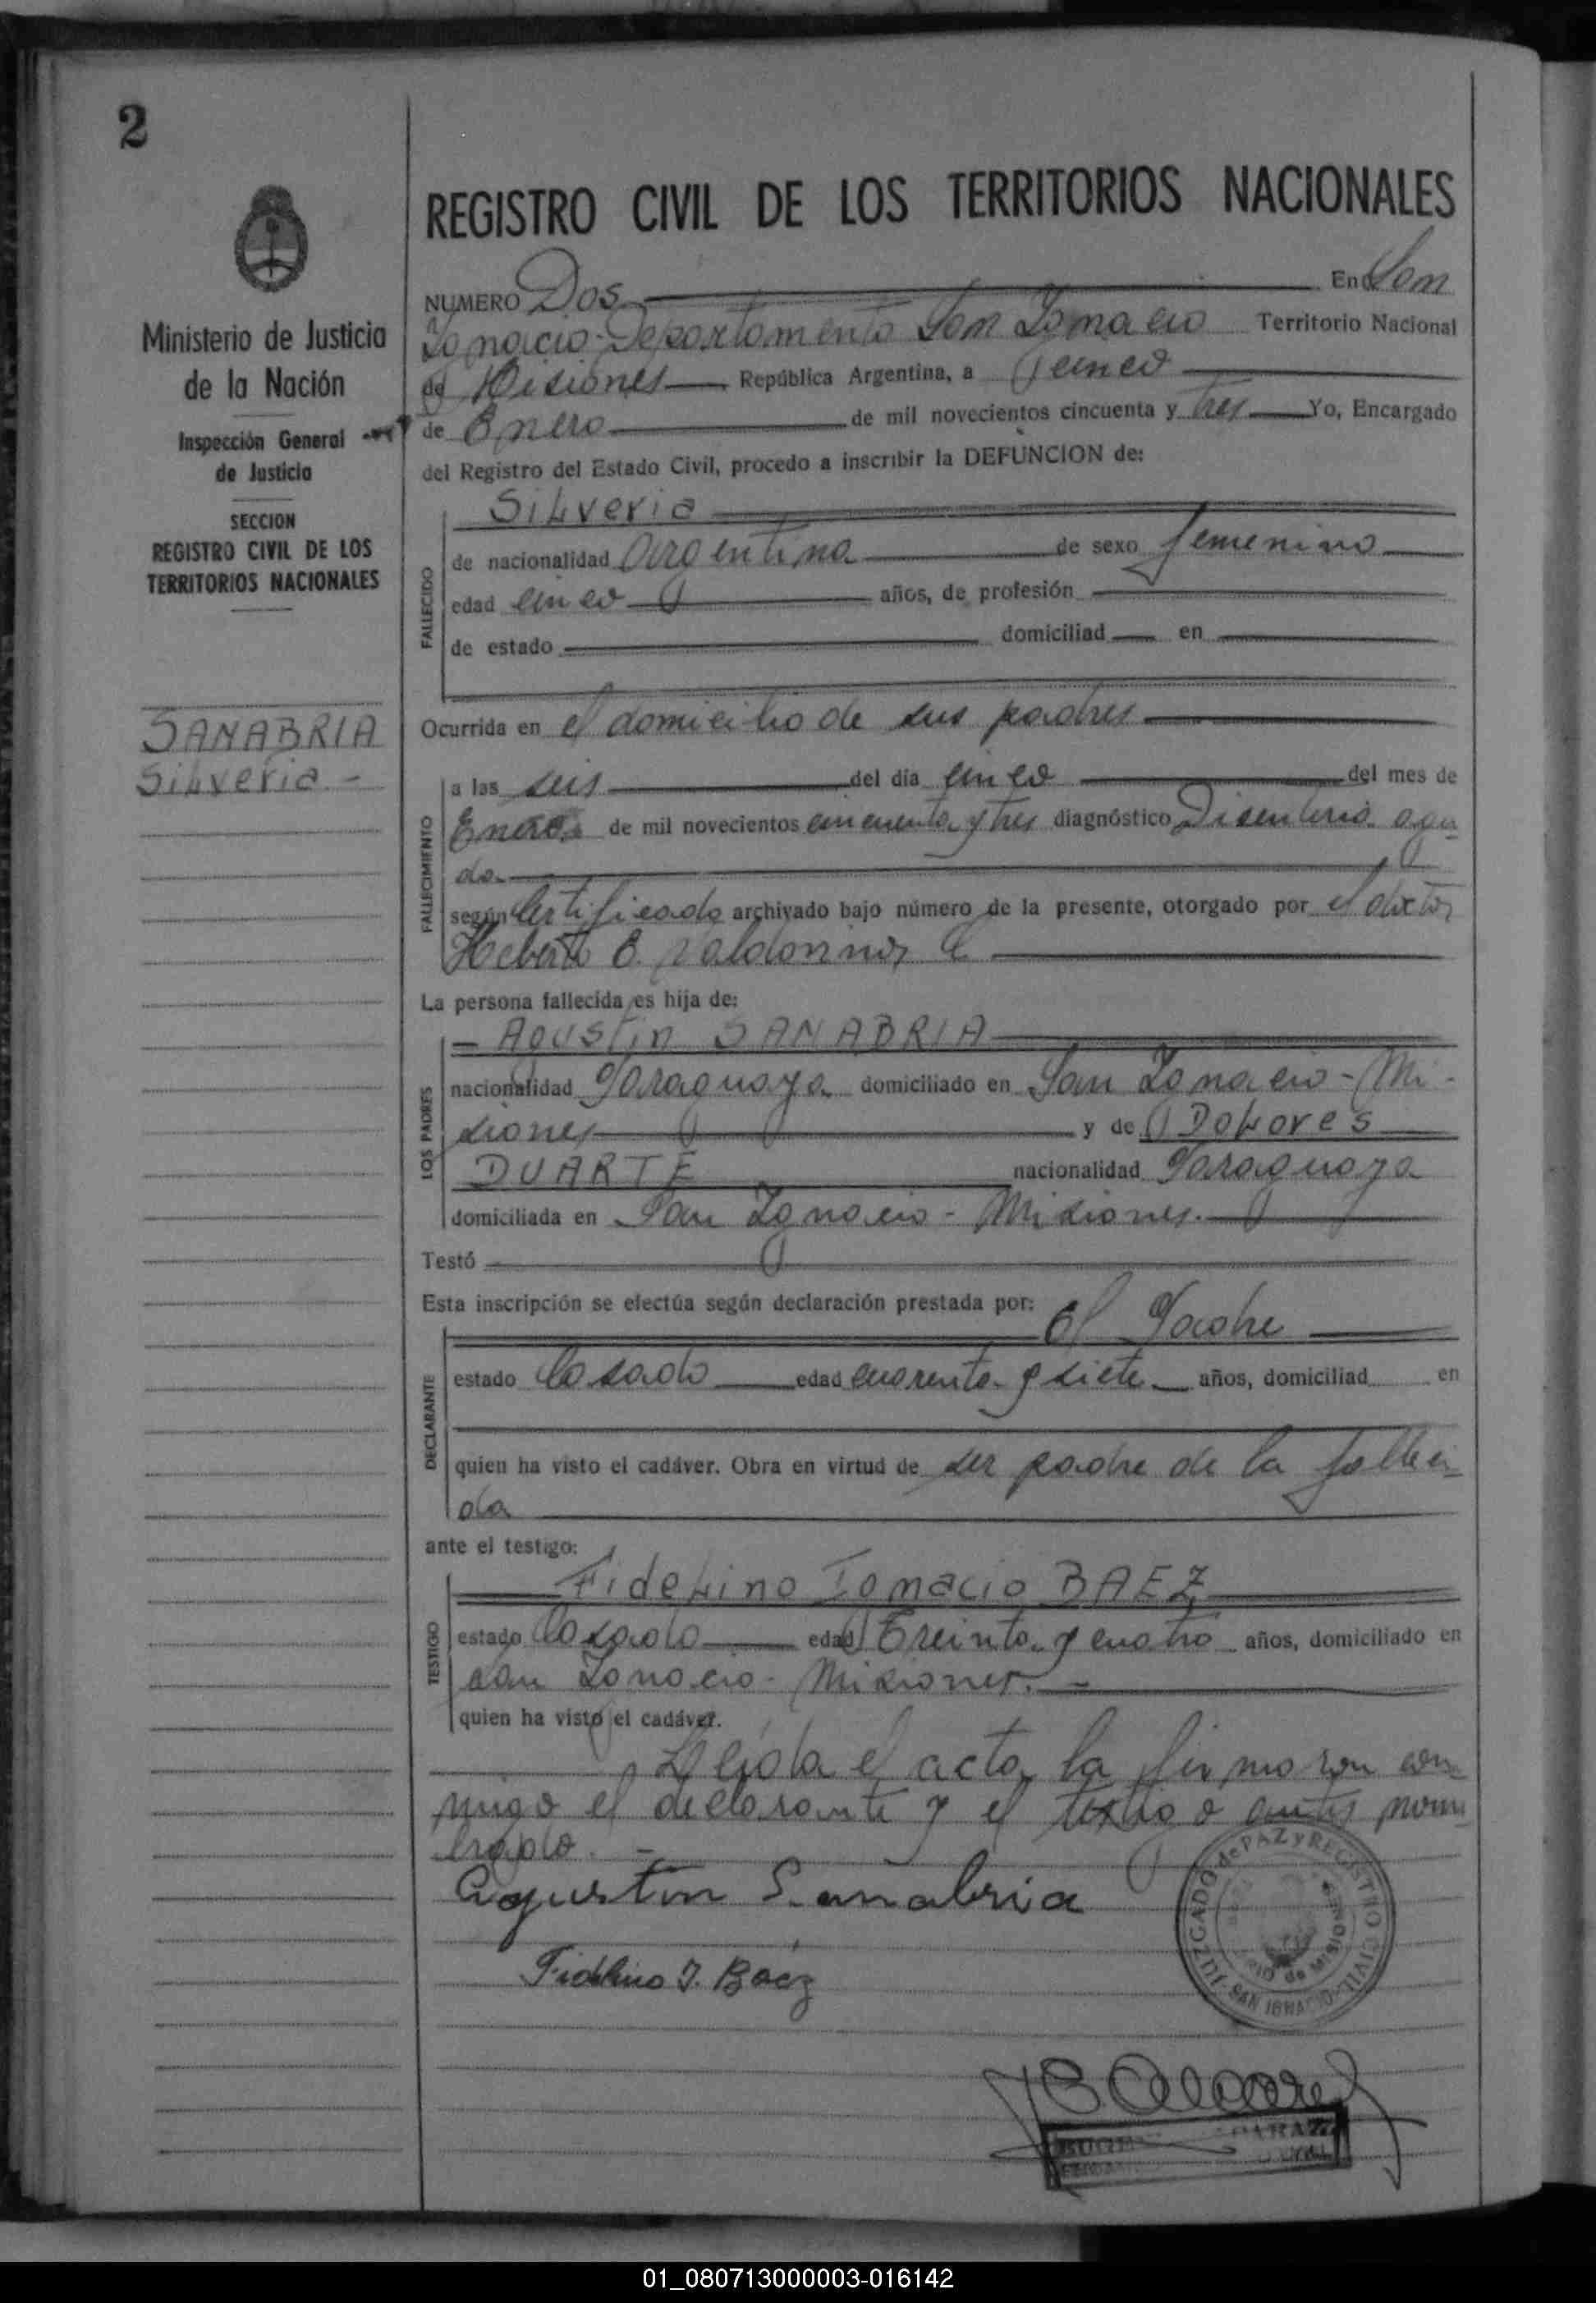 2
REGISTRO CIVIL DE LOS TERRITORIOS NACIONALES
Ministerio de Justicia
de la Nación
Inspección General
de Justicia
SECCION
REGISTRO CIVIL DE LOS
TERRITORIOS NACIONALES
SANABRIA
Silveria -
NUMERO Dos En San
Ignacio - Departamento San Ignacio Territorio Nacional
de Misiones República Argentina, a cinco
de Enero de mil novecientos cincuenta y tres Yo, Encargado
del Registro del Estado Civil, procedo a inscribir la DEFUNCION de:
FALLECIDO
Silveria
de nacionalidad argentina de sexo femenino
edad cinco años, de profesión
de estado domiciliad en
Ocurrida en el domicilio de sus padres
FALLECIMIENTO
a las seis del día cinco del mes de
Enero de mil novecientos cincuenta y tres diagnóstico Disenteria agu-
da.
según Certificado archivado bajo número de la presente, otorgado por el doctor
Heberto E.
La persona fallecida es hija de:
LOS PADRES
- Agustin SANABRIA
nacionalidad Paraguaya domiciliado en San Ignacio - Mi-
siones y de Dolores
DUARTE nacionalidad Paraguaya
domiciliada en San Ignacio - Misiones.
Testó
Esta inscripción se efectúa según declaración prestada por: El Padre
DECLARANTE
estado Casado edad cuarenta y siete años, domiciliad en
quien ha visto el cadáver. Obra en virtud de ser padre de la falleci-
da
ante el testigo:
TESTIGO
Fidelino Ignacio BAEZ
estado Casado edad Treinta y cuatro años, domiciliado en
San Ignacio - Misiones. -
quien ha visto el cadáver.
Leída el acta, la firmaron con-
migo el declarante y el testigo antes nom-
brado. -
Agustin Sanabria
Fidelino I. Baez
JUZGADO de PAZ y REGISTRO CIVIL
SAN IGNACIO
RIO de MISIONES
01_080713000003-016142